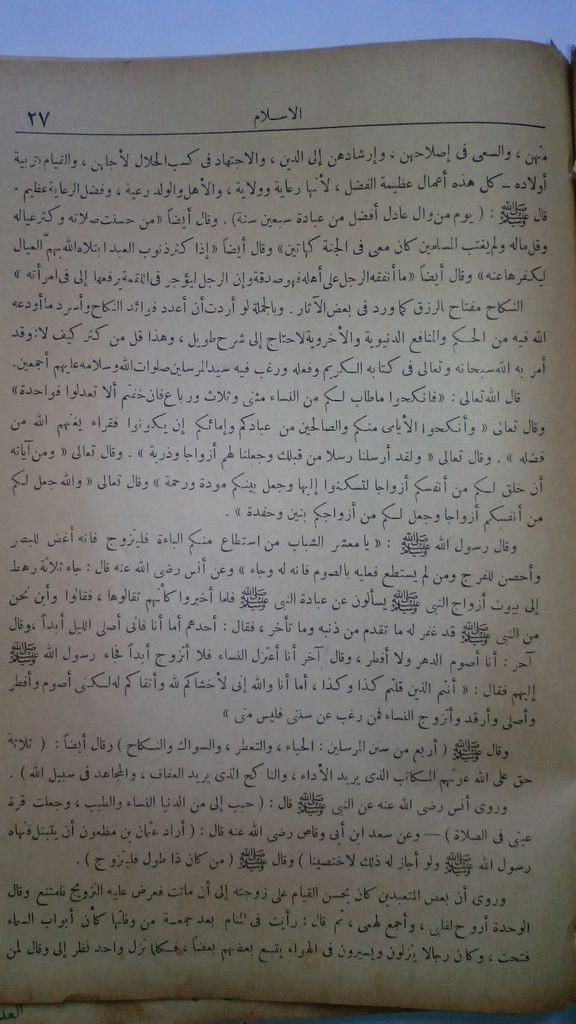 الاسلام ٢٧
منهن ، والسعى فى إصلاحهن ، وإرشادهن إلى الدين ، والاجتهاد فى كسب الحلال لأجلهن ، والقيام بتربية
أولاده — كل هذه أعمال عظيمة الفضل ، لأنها رعاية وولاية ، والأهل والولد رعية ، وفضل الرعاية عظيم .
قال ﷺ : ( يوم من وال عادل أفضل من عبادة سبعين سنة ) . وقال أيضاً « من حسنت صلاته وكثر عياله
وقل ماله ولم يغتب المسلمين كان معى فى الجنة كهاتين » وقال أيضاً « إذا كثر ذنوب العبد ابتلاه الله بهم العيال
ليكفرها عنه » وقال أيضاً « ما أنفقه الرجل على أهله فهو صدقة وإن الرجل ليؤجر فى اللقمة يرفعها إلى فى امرأته »
النكاح مفتاح الرزق كما ورد فى بعض الآثار . وبالجملة لو أردت أن أعدد فوائد النكاح وأسرد ما أودعه
الله فيه من الحكم والمنافع الدنيوية والأخروية لاحتاج إلى شرح طويل ، وهذا قل من كثر كيف لا ؛ وقد
أمر به الله سبحانه وتعالى فى كتابه الكريم وفعله ورغب فيه سيد المرسلين صلوات الله وسلامه عليهم أجمعين.
قال الله تعالى : « فانكحوا ماطاب لكم من النساء مثنى وثلاث ورباع فان خفتم ألا تعدلوا فواحدة»
وقال تعالى « وأنكحوا الأيامى منكم والصالحين من عبادكم وإمائكم إن يكونوا فقراء يغنهم الله من
فضله » . وقال تعالى « ولقد أرسلنا رسلا من قبلك وجعلنا لهم أزواجا وذرية » . وقال تعالى « ومن آياته
أن خلق لكم من أنفسكم أزواجا لتسكنوا إليها وجعل بينكم مودة ورحمة » وقال تعالى « والله جعل لكم
من أنفسكم أزواجا وجعل لكم من أزواجكم بنين وحفدة » .
وقال رسول الله ﷺ : « يا معشر الشباب من استطاع منكم الباءة فليتزوج فانه أغض للبصر
وأحصن للفرج ومن لم يستطع فعليه بالصوم فانه له وجاء » وعن أنس رضى الله عنه قال : جاء ثلاثة رهط
إلى بيوت أزواج النبى ﷺ يسألون عن عبادة النبى ﷺ فلما أخبروا كأنهم تقالوها ، فقالوا وأين نحن
من النبى ﷺ قد غفر له ما تقدم من ذنبه وما تأخر ، فقال : أحدهم أما أنا فانى أصلى الليل أبداً ، وقال
آخر : أنا أصوم الدهر ولا أفطر ، وقال آخر أنا أعتزل النساء فلا أتزوج أبداً فجاء رسول الله ﷺ
إليهم فقال : « أنتم الذين قلتم كذا وكذا ، أما أنا والله إنى لأخشاكم لله وأتقاكم له لكنى أصوم وأفطر
وأصلى وأرقد وأتزوج النساء فمن رغب عن سنتى فليس منى »
وقال ﷺ ( أربع من سنن المرسلين : الحياء ، والتعطر ، والسواك والنكاح ) وقال أيضاً : ( ثلاثة
حق على الله عونهم المكاتب الذى يريد الأداء ، والناكح الذى يريد العفاف ، والمجاهد فى سبيل الله ) .
وروى أنس رضى الله عنه عن النبى ﷺ قال : ( حبب إلى من الدنيا النساء والطيب ، وجعلت قرة
عينى فى الصلاة ) — وعن سعد ابن أبى وقاص رضى الله عنه قال : ( أراد عثمان بن مظعون أن يتبتل فنهاه
رسول الله ﷺ ولو أجاز له ذلك لاختصينا ) وقال ﷺ ( من كان ذا طول فليتزوج ) .
وروى أن بعض المتعبدين كان يحسن القيام على زوجته إلى أن ماتت فعرض عليه التزويج فامتنع وقال
الوحدة أروح لقلبى ، وأجمع لهمى ، ثم قال : رأيت فى المنام بعد جمعة من وفاتها كأن أبواب السماء
فتحت ، وكأن رجالا ينزلون ويسيرون فى الهواء يتبع بعضهم بعضاً ، فكلما نزل واحد نظر إلى وقال لمن